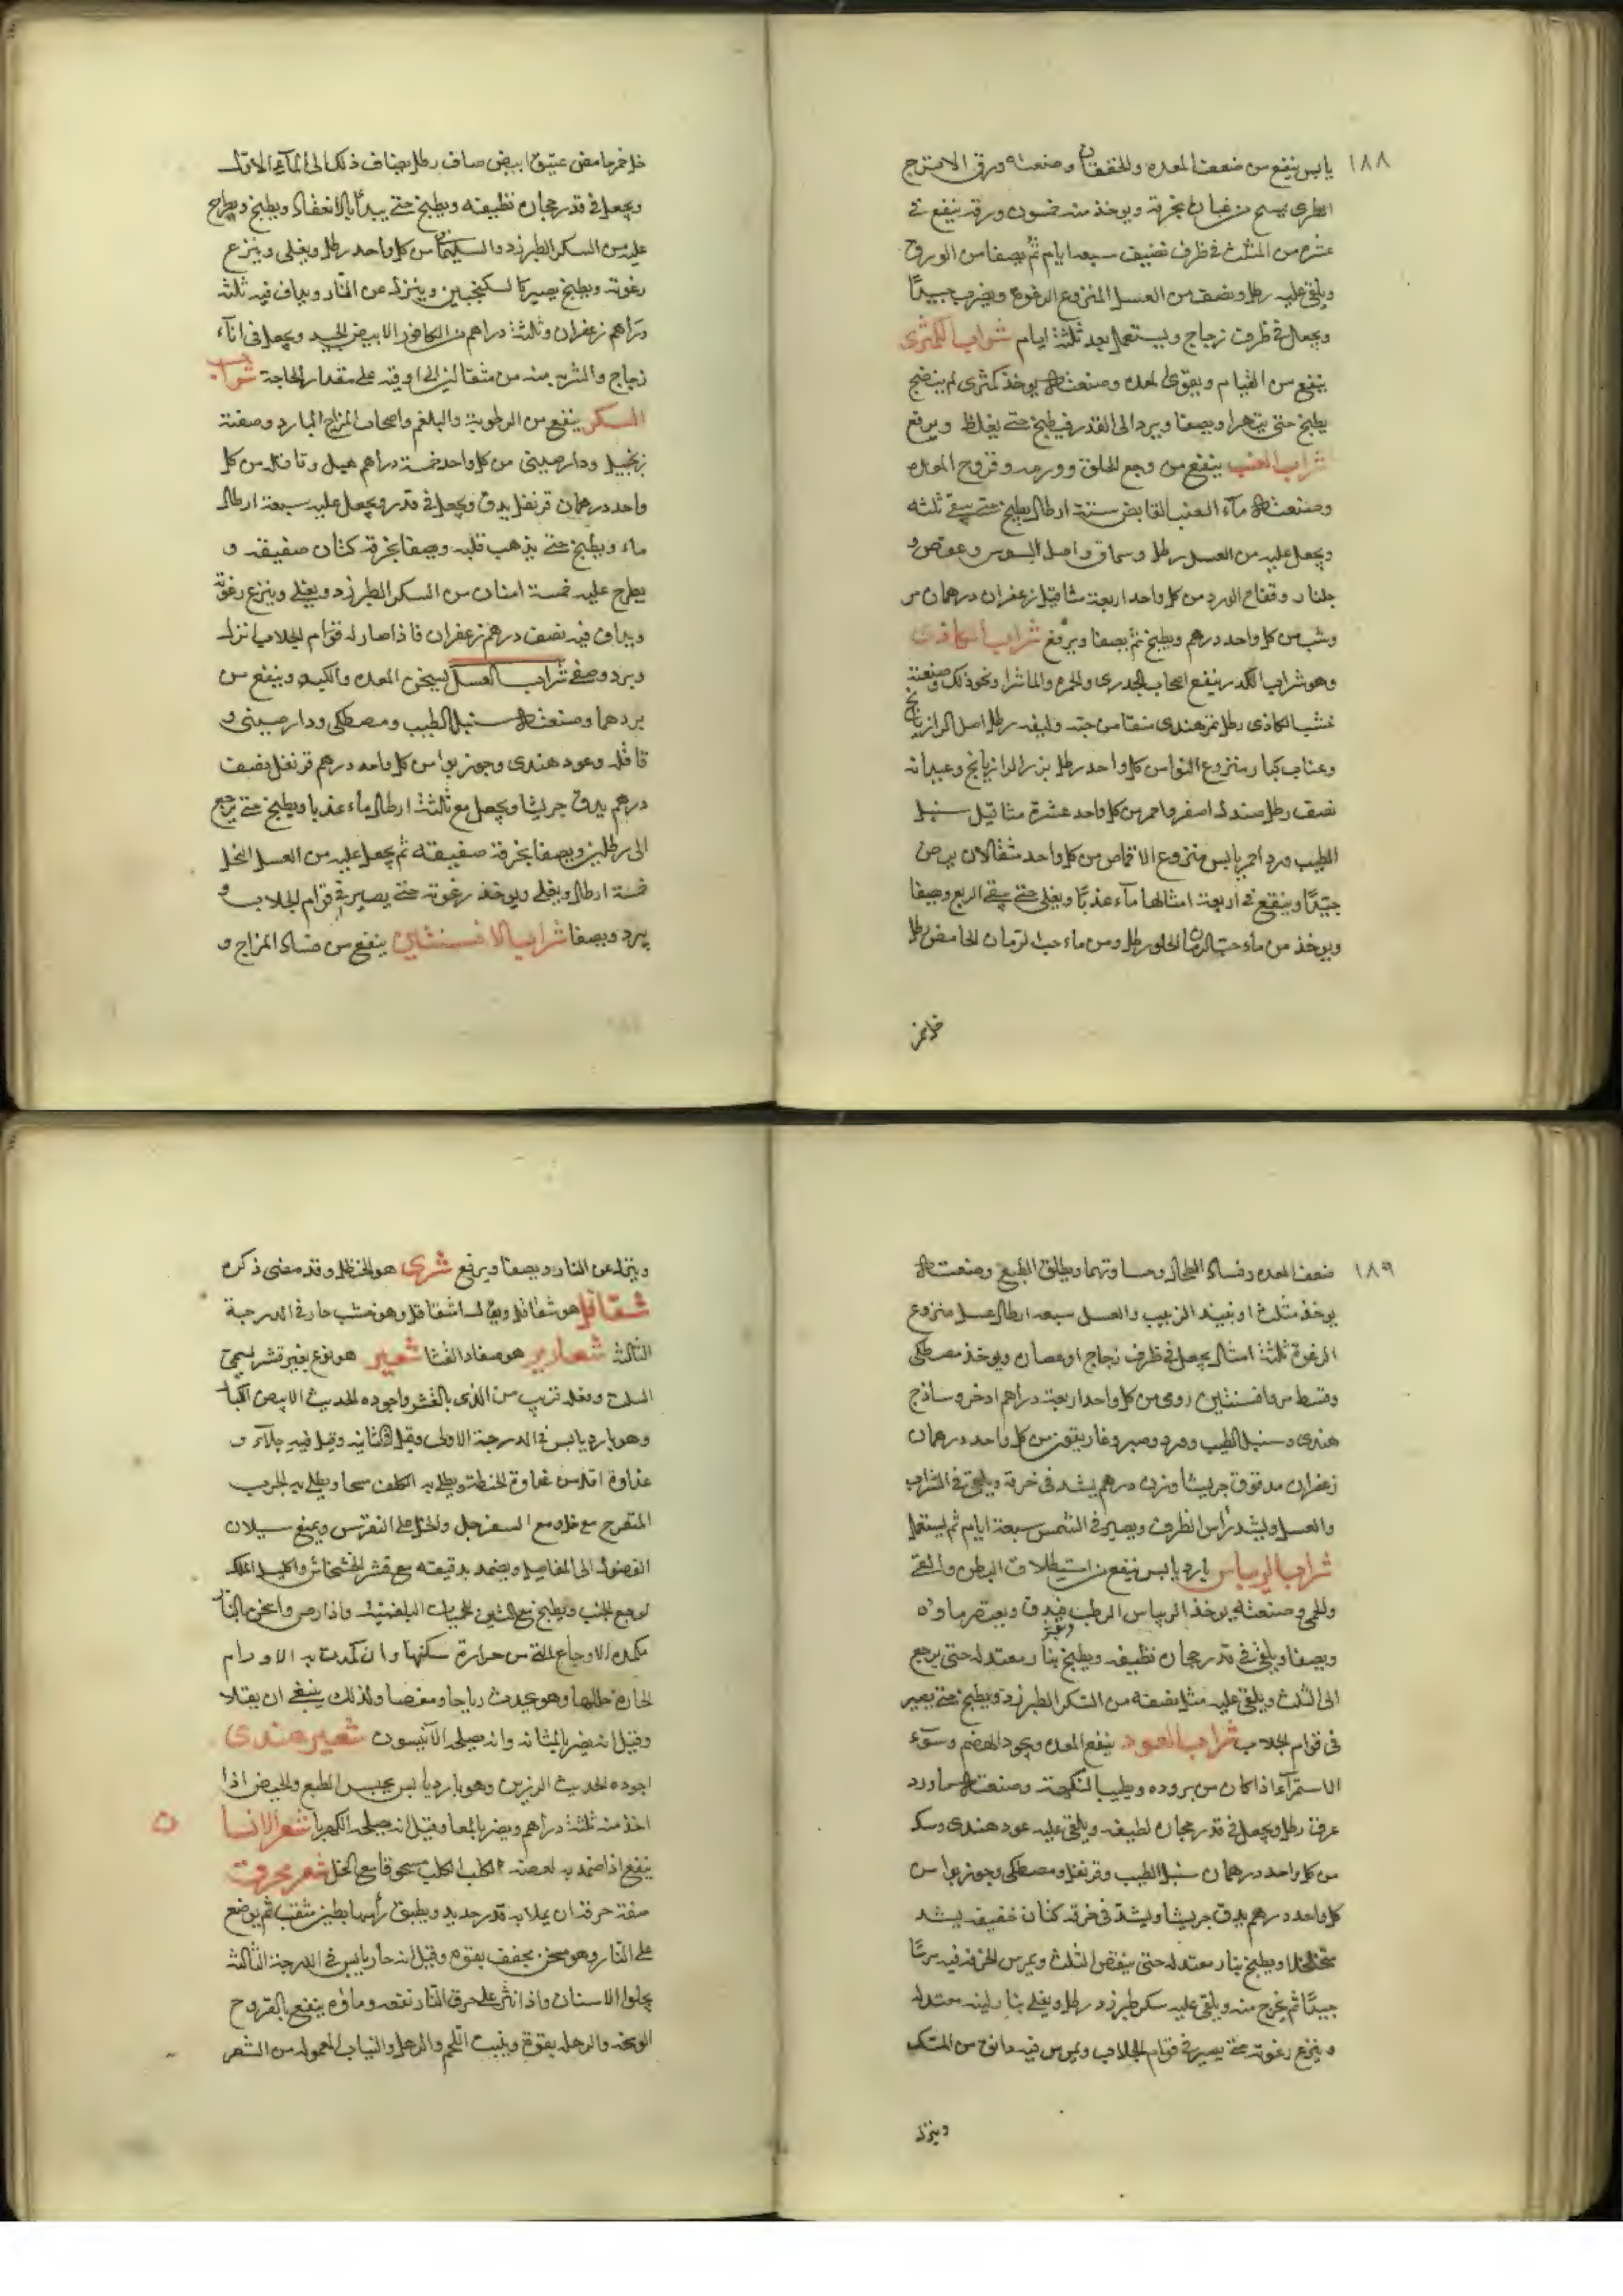 ١٨٨
يابس ينفع من ضعف المعده والخفقان وصنعته ورق الاترج
الطرى يمسح من غبان بخرقه ويوخذ منه خمسون ورقه ينقع فى
عشره من المثلث فى ظرف نضيف سبعه ايام ثم يصفا من الورق
ويلقى عليه رطل ونصف من العسل المنزوع الرغوه ويضرب جيدًا
ويجعل فى ظرف زجاج ويستعمل بعد ثلثة ايام شراب الكمثرى
ينفع من القيام ويقوى المعده وصنعته يوخذ كمثرى لم ينضج
يطبخ حتى يتهرا ويصفا ويرد الى القدر فيطبخ حتى يغلظ ويرفع
شراب العنب ينفع من وجع الحلق وورمه وقروح المعده
وصنعته ماء العنب القابض ستة ارطال يطبخ حتى يبقى ثلثه
ويجعل عليه من العسل رطل وسماق واصل السوس وعفص و
جلنار وقفاح الورد من كل واحد اربعة مثاقيل زعفران درهمان مر
وشب من كل واحد درهم ويطبخ ثم يصفا ويرفع شراب الكاذى
وهو شراب الكدر ينفع اصحاب الجدرى والحمره والماشرا ونحو ذلك وصنعته
خشب الكاذى رطل تمر هندى منقا من حبه وليفه رطل اصل الرازيانج
وعناب كبار منزوع النوا من كل واحد رطل بزر الرازيانج وعيدانه
نصف رطل صندل اصفر واحمر من كل واحد عشرة مثاقيل سنبل
الطيب ورد احمر يابس منزوع الاقماص من كل واحد مثقالان يرض
جيّدًا وينقع فى اربعة امثالها ماء عذبًا ويغلى حتى يبقى الربع ويصفا
ويوخذ من ماء حب الرمان الحلو رطل ومن ماء حب الرمان الحامض رطل
خل خمر
خل خمر حامض عتيق ابيض صاف رطل يضاف ذلك الى الماء الاول
ويجعل فى قدر حجاره نظيفه ويطبخ حتى يبدأ بالانعقاد ويطبخ ويطرح
عليه من السكر الطبرزد والسليمانى من كل واحد رطل ويغلى وينزع
رغوته ويطبخ يصير كالسكنجبين وينزل عن النار ويداف فيه ثلثة
دراهم زعفران وثلثة دراهم من الكافور الابيض الجيد ويجعل فى اناء
زجاج والشربه منه من مثقالين الى اوقيه على مقدار الحاجة شراب
السكر ينفع من الرطوبة والبلغم واصحاب المزاج البارد وصفته
زنجبيل ودارصينى من كل واحد خمسة دراهم هيل وقاقله من كل
واحد درهمان قرنفل يدق ويجعل فى قدر ويجعل عليه سبعة ارطال
ماء ويطبخ حتى يذهب قلبه ويصفا بخرقة كتان صفيقه و
يطرح عليه خمسة امنان من السكر الطبرزد ويغلى وينزع رغوته
ويداف فيه نصف درهم زعفران فاذا صار له قوام الجلاب انزل
وبرد وصفى شراب العسل يسخن المعده والكبد وينفع من
بردهما وصنعته سنبل الطيب ومصطكى ودارصينى و
قاقله وعود هندى وجوز بوا من كل واحد درهم قرنفل نصف
درهم يدق جريشا ويجعل مع ثلثة ارطال ماء عذبا ويطبخ حتى يرجع
الى رطلين ويصفا بخرقة صفيقه ثم يجعل عليه من العسل النحل
خمسة ارطال ويغلى ويوخذ رغوته حتى يصير فى قوام الجلاب و
يبرد ويصفا شراب الافسنتين ينفع من فساد المزاج و
١٨٩
ضعف المعده وفساد الطحال وحساوتهما ويطلق الطبع وصنعته
يوخذ مثلث او نبيذ الزبيب والعسل سبعه ارطال عسل منزوع
الرغوة ثلثة امثال يجعل فى ظرف زجاج او عصاره ويوخذ مصطكى
وقسط مر وافسنتين رومى من كل واحد اربعة دراهم اذخر وساذج
هندى وسنبل الطيب وورد وصبر وغاريقون من كل واحد درهمان
زعفران مدقوق جريشا وزن درهم يشد فى خرقة ويلقى فى الشراب
والعسل ويشد رأس الظرف ويصير فى الشمس سبعة ايام ثم يستعمل
شراب الريباس بارد يابس ينفع من استطلاق البطن والقى
والحمى وصنعته يوخذ الريباس الرطب فيدق ويعتصر ماوه
ويصفا ويلقى فى قدر حجاره نظيفه ويطبخ بنار معتدله حتى يرجع
الى الثلث ويلقى عليه مثل نصفه من السكر الطبرزد ويطبخ حتى يصير
فى قوام الجلاب شراب العود ينفع المعده ويجود الهضم وسوء
الاستمراء اذا كان من بروده ويطيب النكهة وصنعته ماورد
عرق رطل ويجعل فى قدر حجاره لطيفه ويلقى عليه عود هندى وسك
من كل واحد درهمان سنبل الطيب وقرنفل ومصطكى وجوز بوا من
كل واحد درهم يدق جريشا ويشد فى خرقه كتان خفيفه يشد
متخلخلا ويطبخ بنار معتدله حتى ينقص الثلث ويمرس الخرقه فيه مرسًا
جيدًا ثم يخرج منه ويلقى عليه سكر طبرزد رطل ويغلى بنار لينه معتدله
وينزع رغوته حتى يصير فى قوام الجلاب ويمرس فيه دانق من المسك
وينزل
وينزل عن النار ويصفا ويرفع شرى هو الحنظل وقد مضى ذكره
شقاقل هو شقاقل ويقال له اشقاقل وهو خشب حار فى الدرجة
الثالثه شعارير هو صغار القثا شعير هو نوع بغير قشر يسمى
السلت وفعله قريب من الذى بالقشر واجوده الحديث الابيض الكبار
وهو بارد يابس فى الدرجة الاولى وقيل فى الثانيه وقيل فيه جلاء و
غذاوه اقل من غذاوة الحنطة ويطلى به الكلف سحا ويطلى به الجرب
المتقرح مع خل ومع السفرجل والخل على النقرس ويمنع سيلان
الفضول الى المفاصل ويضمد بدقيقه مع قشر الخشخاش واكليل الملك
لوجع الجنب ويطبخ مع التين للحميات البلغميه واذا رض واسخن بالنار
يكمد به الاوجاع التى من حرارة سكنها وان كمدت به الاورام
الحاره حللها وهو يحدث رياحا ومغصا ولذلك ينبغى ان يقلا
وقيل انه يضر بالمثانه وانه يصلحه الآنيسون شعير هندى
اجوده الحديث الرزين وهو بارد يابس يحبس الطبع والحيض اذا
اخذ منه ثلثة دراهم ويضر بالمعا وقيل انه يصلحه الكهربا شعر الانسا
ن
ينفع اذا ضمد به لعضه الكلب الكلب مسحوقا مع الخل شعر محرق
صفة حرقه ان يملا به قدر جديد ويطبق رأسها بطين مثقب ثم يوضع
على النار وهو مسخن يجفف بقوه وقيل انه حار يابس فى الدرجة الثالثه
يجلوا الاسنان واذا نثر على حرق النار نفعه وماوه ينفع بالقروح
الوسخه والرهله بقوة وينبت اللحم والرهل والثياب المعموله من الشعر